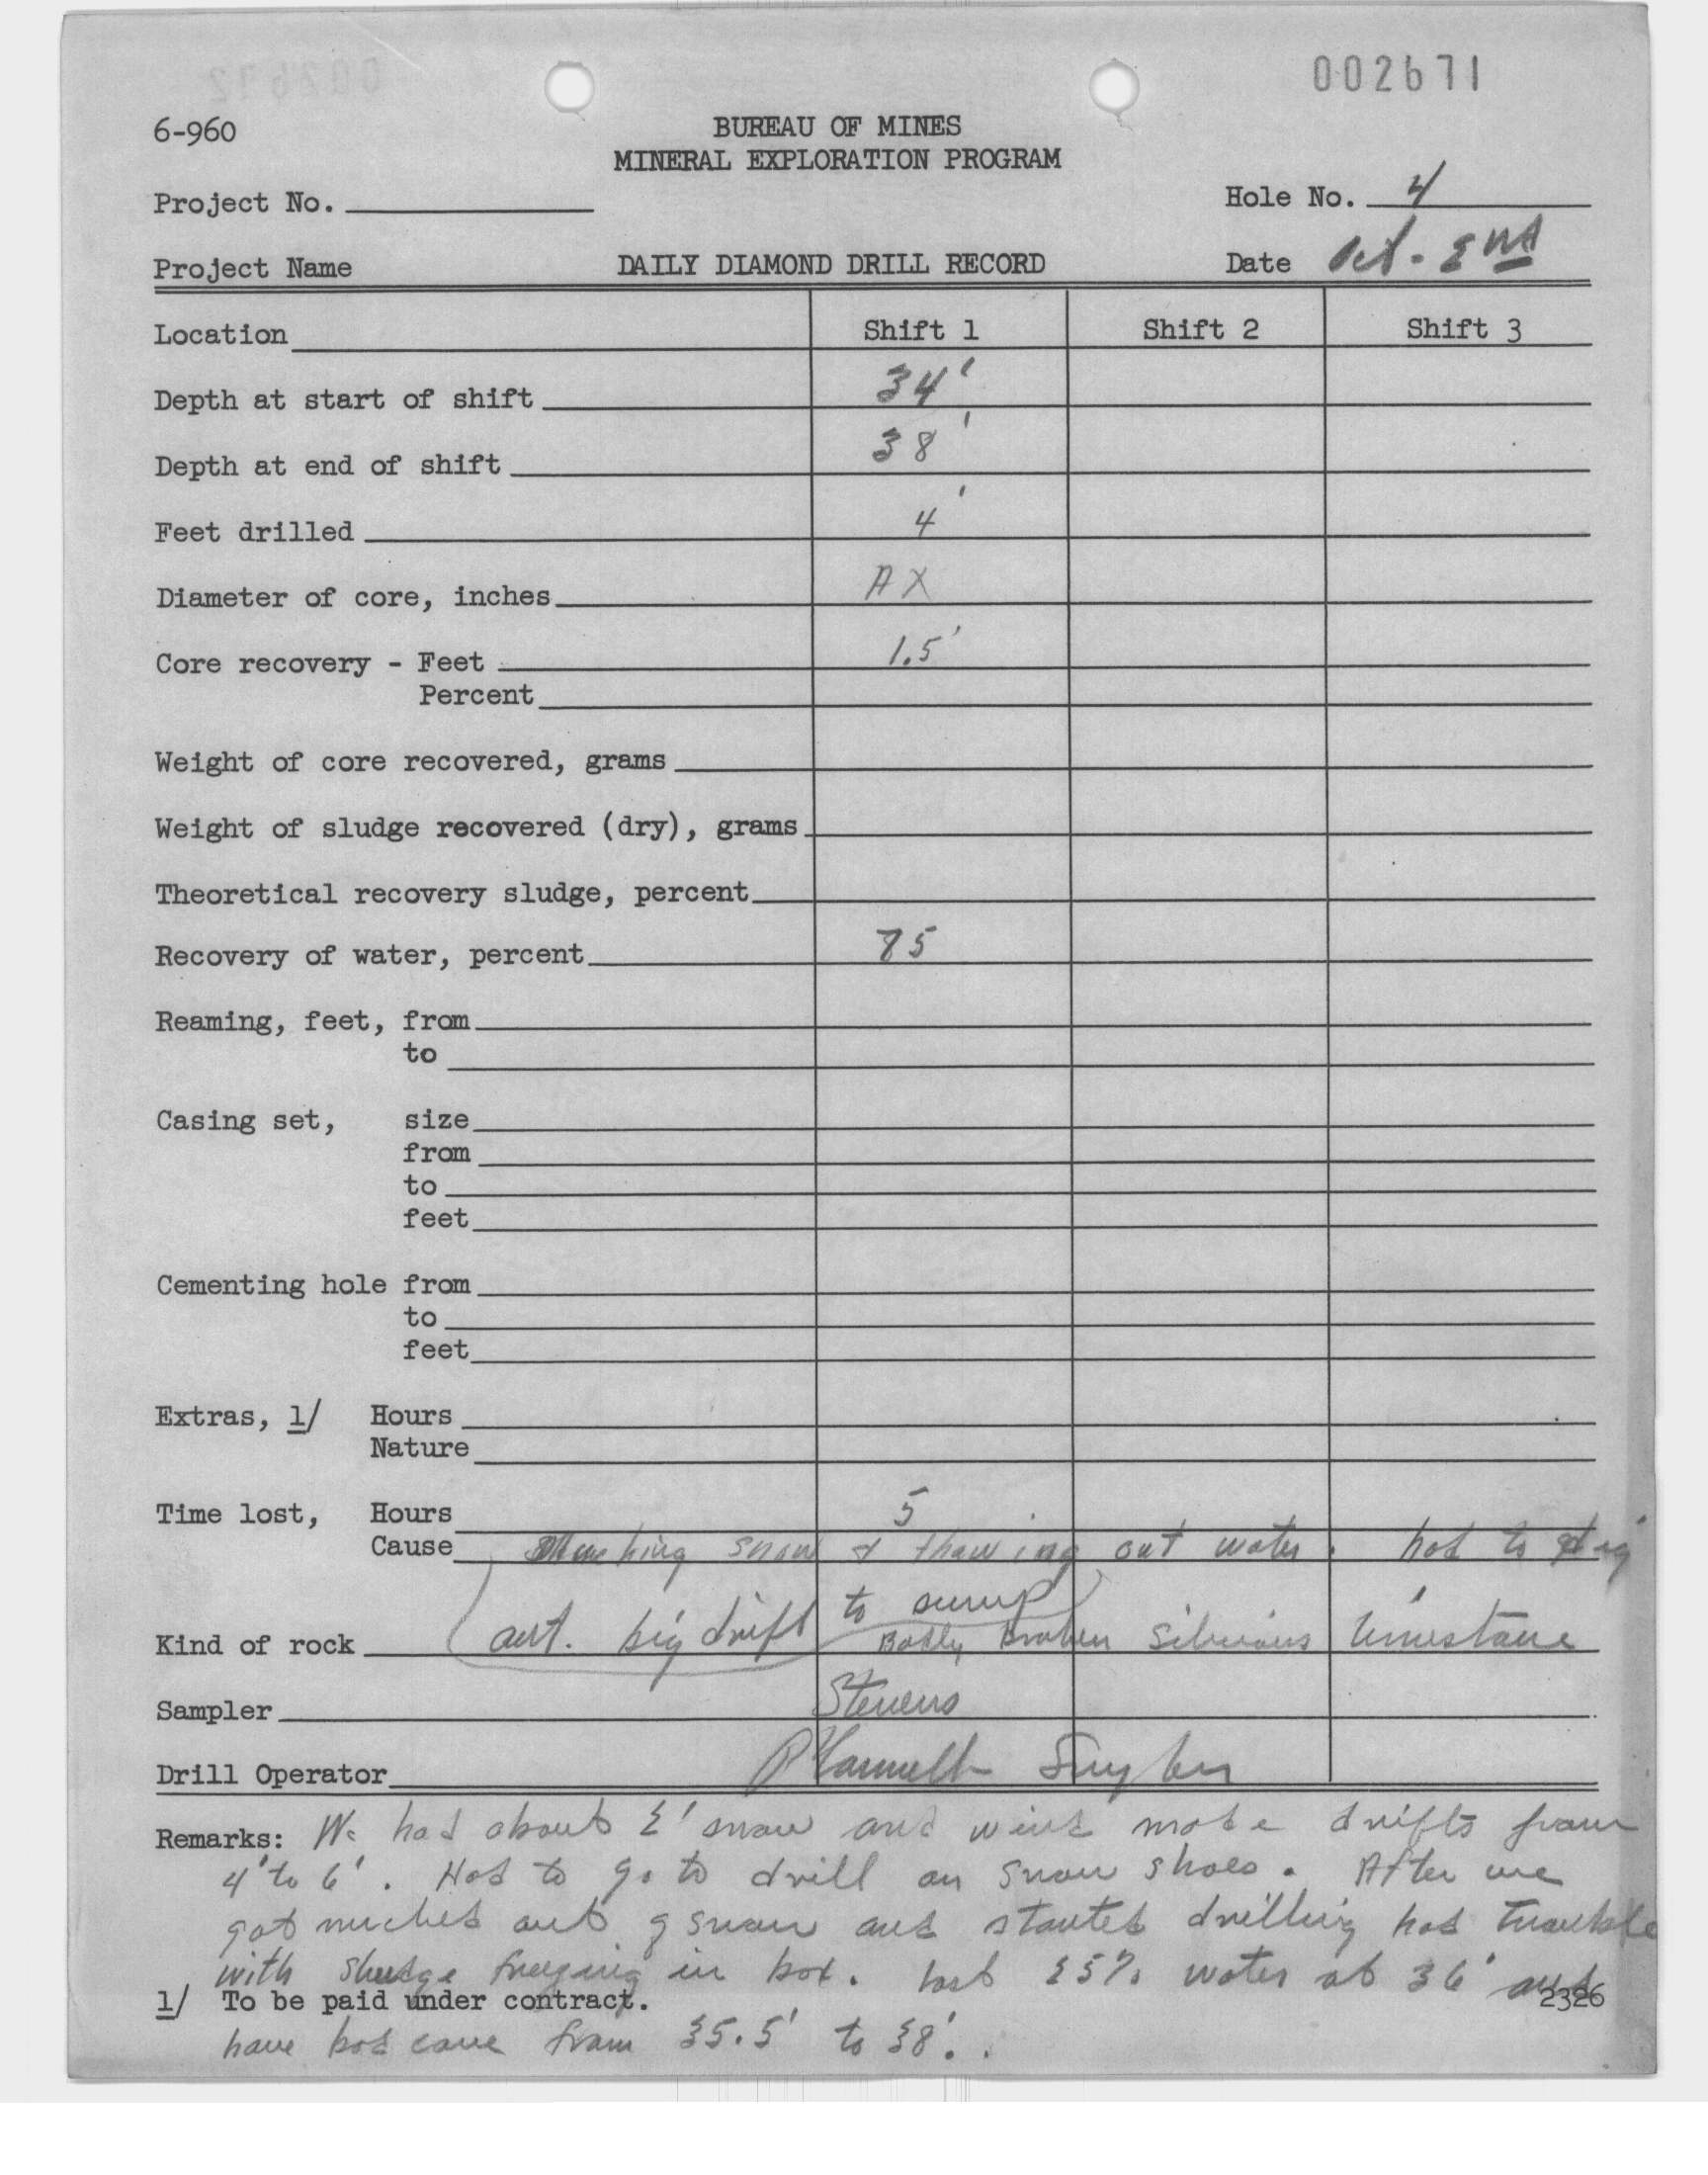 002671
6-960
BUREAU OF MINES
MINERAL EXPLORATION PROGRAM
Project No.
Hole No. 4
Project Name
DAILY DIAMOND DRILL RECORD
Date Oct. 2nd
Location Shift 1 Shift 2 Shift 3
Depth at start of shift 34'
Depth at end of shift 38'
Feet drilled 4'
Diameter of core, inches AX
Core recovery - Feet 1.5'
Percent
Weight of core recovered, grams
Weight of sludge recovered (dry), grams
Theoretical recovery sludge, percent
Recovery of water, percent 75
Reaming, feet, from
to
Casing set, size
from
to
feet
Cementing hole from
to
feet
Extras, 1/ Hours
Nature
Time lost, Hours 5
Cause snow & thawing out water. had to dig
out. big drift to sump
Kind of rock Badly broken limestone
Sampler Stevens
Drill Operator Snyder
Remarks: We had about 2' snow and wind made drifts from
4' to 6'. Had to go to drill on snow shoes. After we
got out of snow and started drilling had trouble
with sludge freezing in box. lost 25% water at 36' and
1/ To be paid under contract. 2326
have bad cave from 35.5' to 38'.